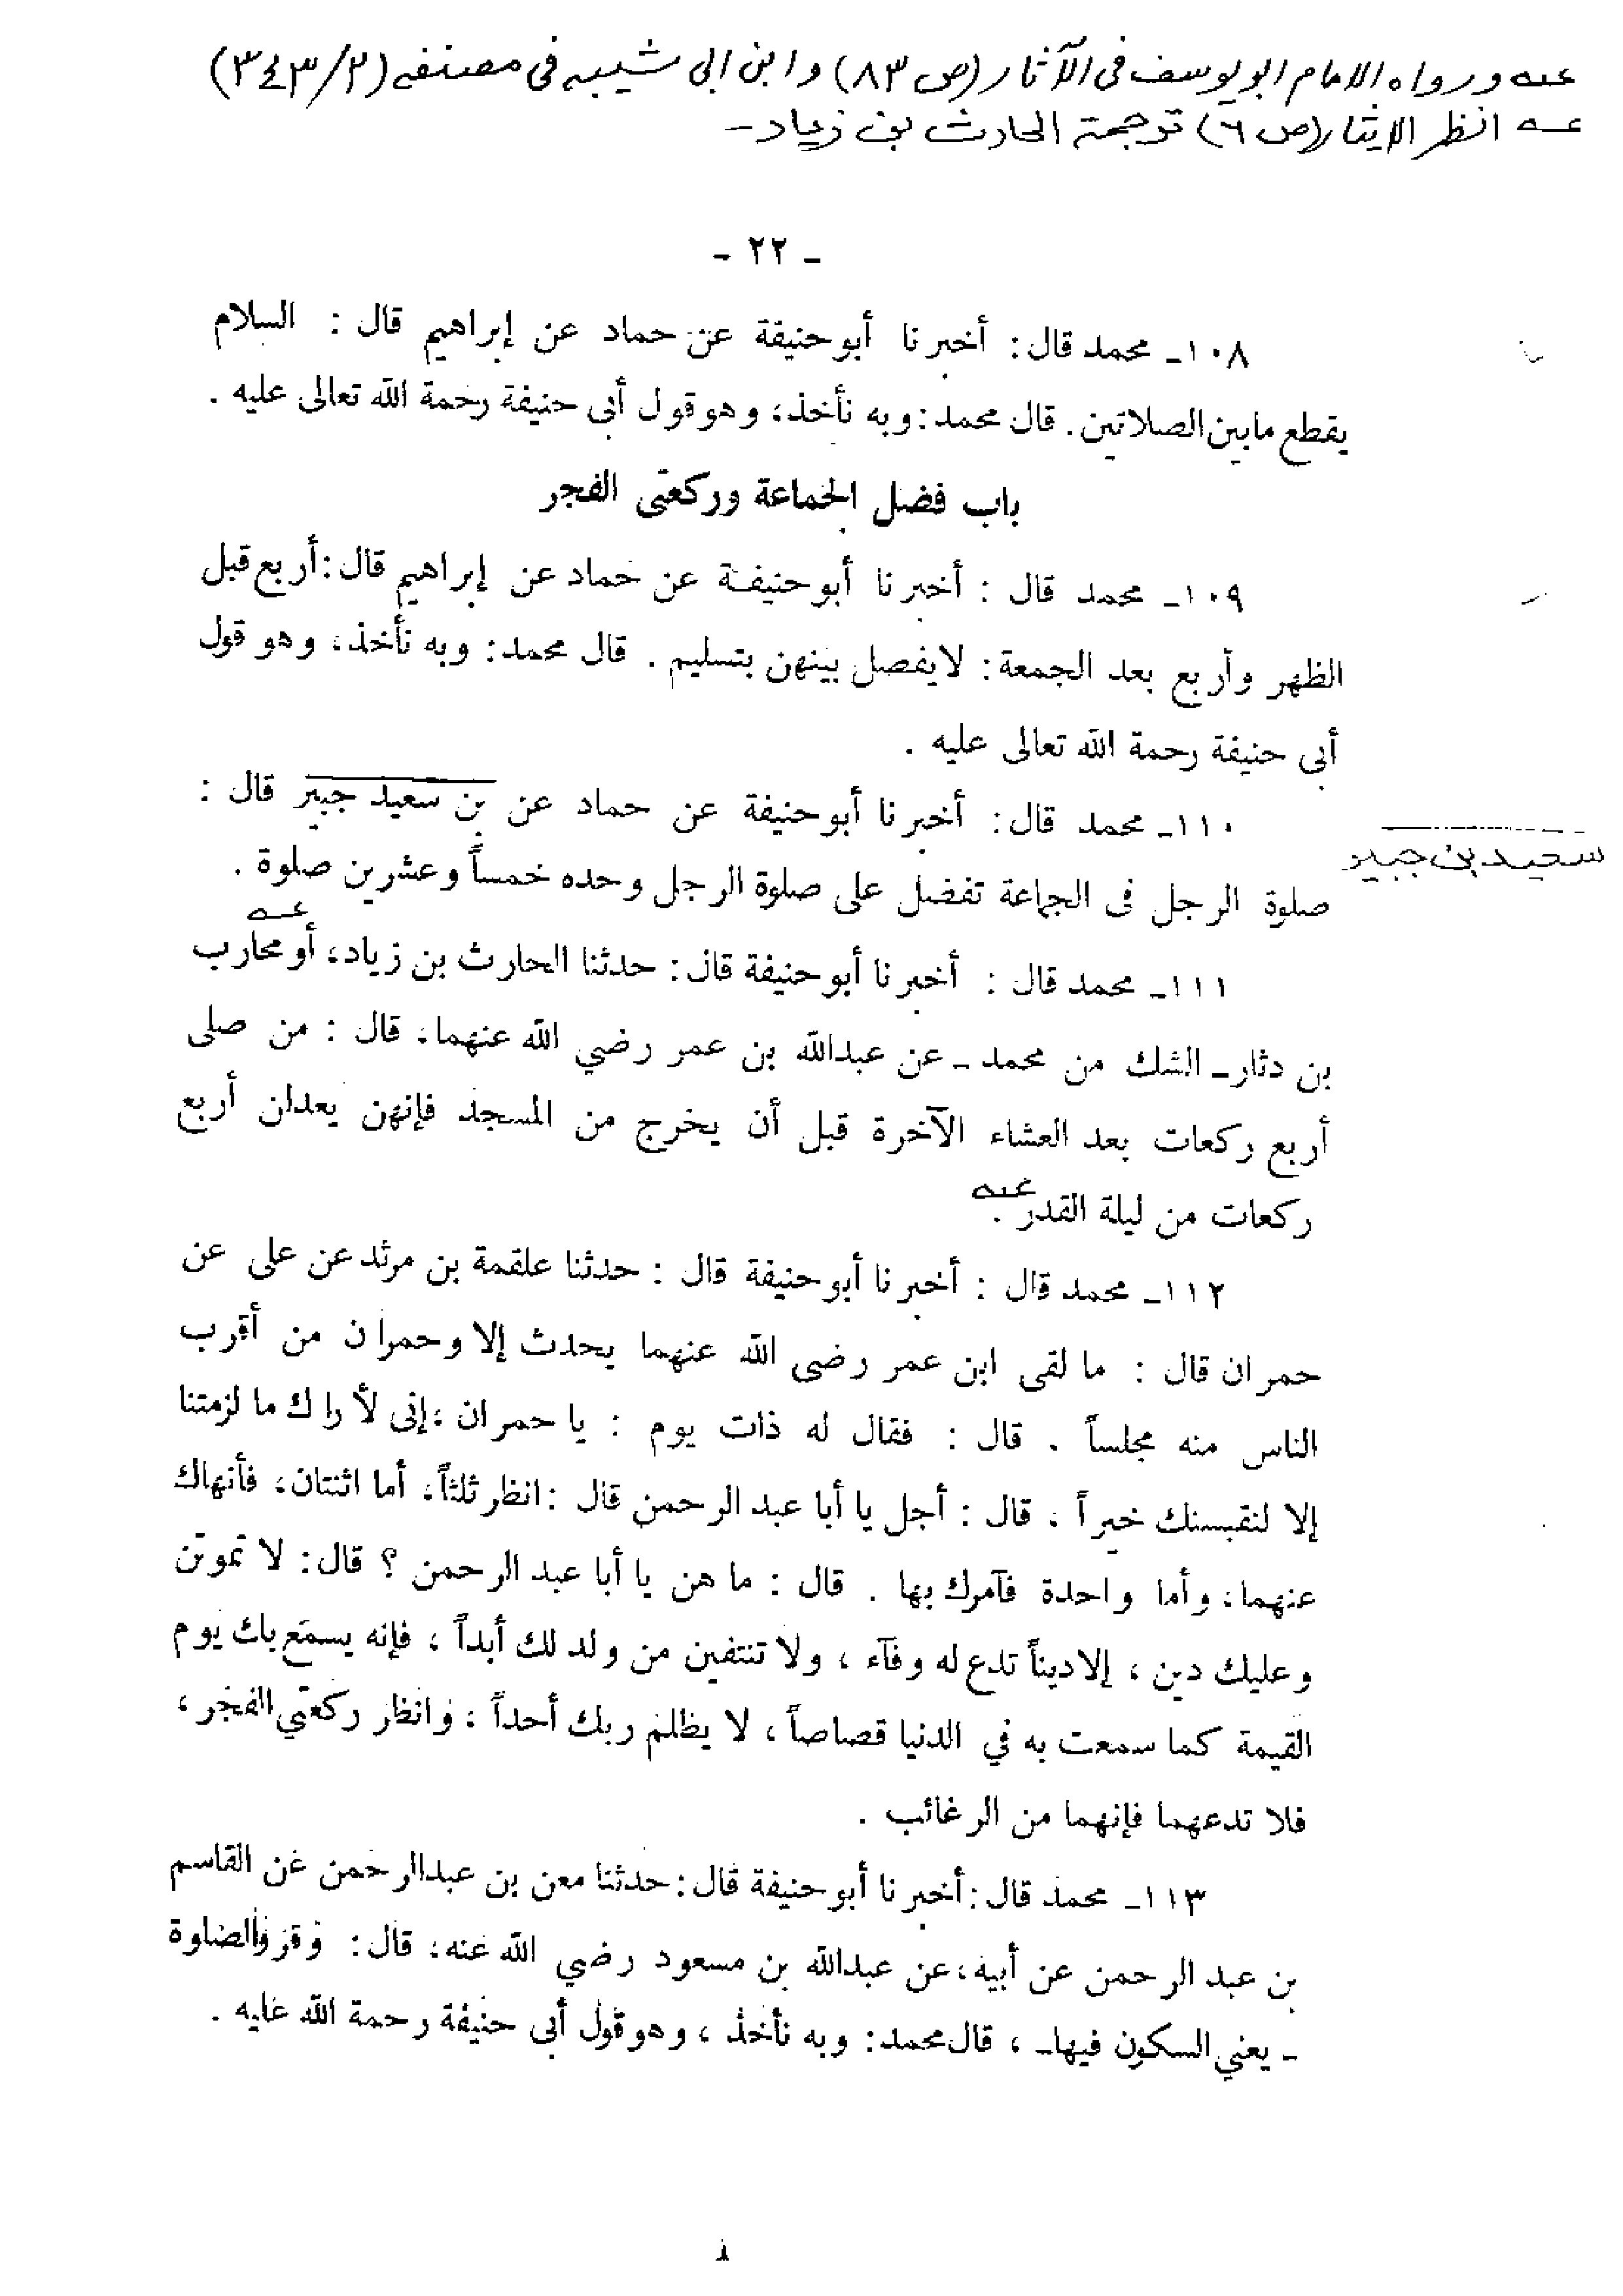 عنه ورواه الامام ابو يوسف فى الآثار (ص ٨٣) وابن ابى شيبه فى مصنفه (٣٤٣/٢)
عــه انظر الايثار (ص ٦) ترجمة الحارث بن زياد -
- ٢٢ -
١٠٨ـ محمد قال: أخبرنا أبو حنيفة عن حماد عن إبراهيم قال : السلام
يقطع مابين الصلاتين. قال محمد: وبه نأخذ، وهو قول أبى حنيفة رحمة الله تعالى عليه .
باب فضل الجماعة وركعتى الفجر
١٠٩ـ محمد قال : أخبرنا أبو حنيفة عن حماد عن إبراهيم قال: أربع قبل
الظهر وأربع بعد الجمعة: لايفصل بينهن بتسليم . قال محمد: وبه نأخذ، وهو قول
أبى حنيفة رحمة الله تعالى عليه .
١١٠ـ محمد قال: أخبرنا أبو حنيفة عن حماد عن بن سعيد جبير قال :
سعيد بن جبير
صلوة الرجل فى الجماعة تفضل على صلوة الرجل وحده خمساً وعشرين صلوة .
عــه
١١١ـ محمد قال : أخبرنا أبو حنيفة قال: حدثنا الحارث بن زياد، أو محارب
بن دثار ـ الشك من محمد ـ عن عبدالله بن عمر رضي الله عنهما، قال : من صلى
أربع ركعات بعد العشاء الآخرة قبل أن يخرج من المسجد فإنهن يعدلن أربع
ركعات من ليلة القدر . عنه
١١٢ـ محمد قال : أخبرنا أبو حنيفة قال : حدثنا علقمة بن مرثد عن على عن
حمران قال : ما لقى ابن عمر رضى الله عنهما يحدث إلا وحمران من أقرب
الناس منه مجلساً . قال : فقال له ذات يوم : يا حمران ، إنى لأراك ما لزمتنا
إلا لنقبسنك خيراً ، قال : أجل يا أبا عبد الرحمن قال : انظر ثلثاً، أما اثنتان، فأنهاك
عنهما، وأما واحدة فآمرك بها . قال : ما هن يا أبا عبد الرحمن ؟ قال: لا تموتن
وعليك دين ، إلا ديناً تدع له وفآء ، ولا تنتفين من ولد لك أبداً ، فإنه يسمع بك يوم
القيمة كما سمعت به في الدنيا قصاصاً ، لا يظلم ربك أحداً ، وانظر ركعتي الفجر ،
فلا تدعهما فإنهما من الرغائب .
١١٣ـ محمد قال: أخبرنا أبو حنيفة قال: حدثنا معن بن عبدالرحمن عن القاسم
بن عبد الرحمن عن أبيه، عن عبدالله بن مسعود رضي الله عنه، قال: وقروا الصلوة
ـ يعني السكون فيها ـ ، قال محمد: وبه نأخذ ، وهو قول أبى حنيفة رحمة الله عليه .